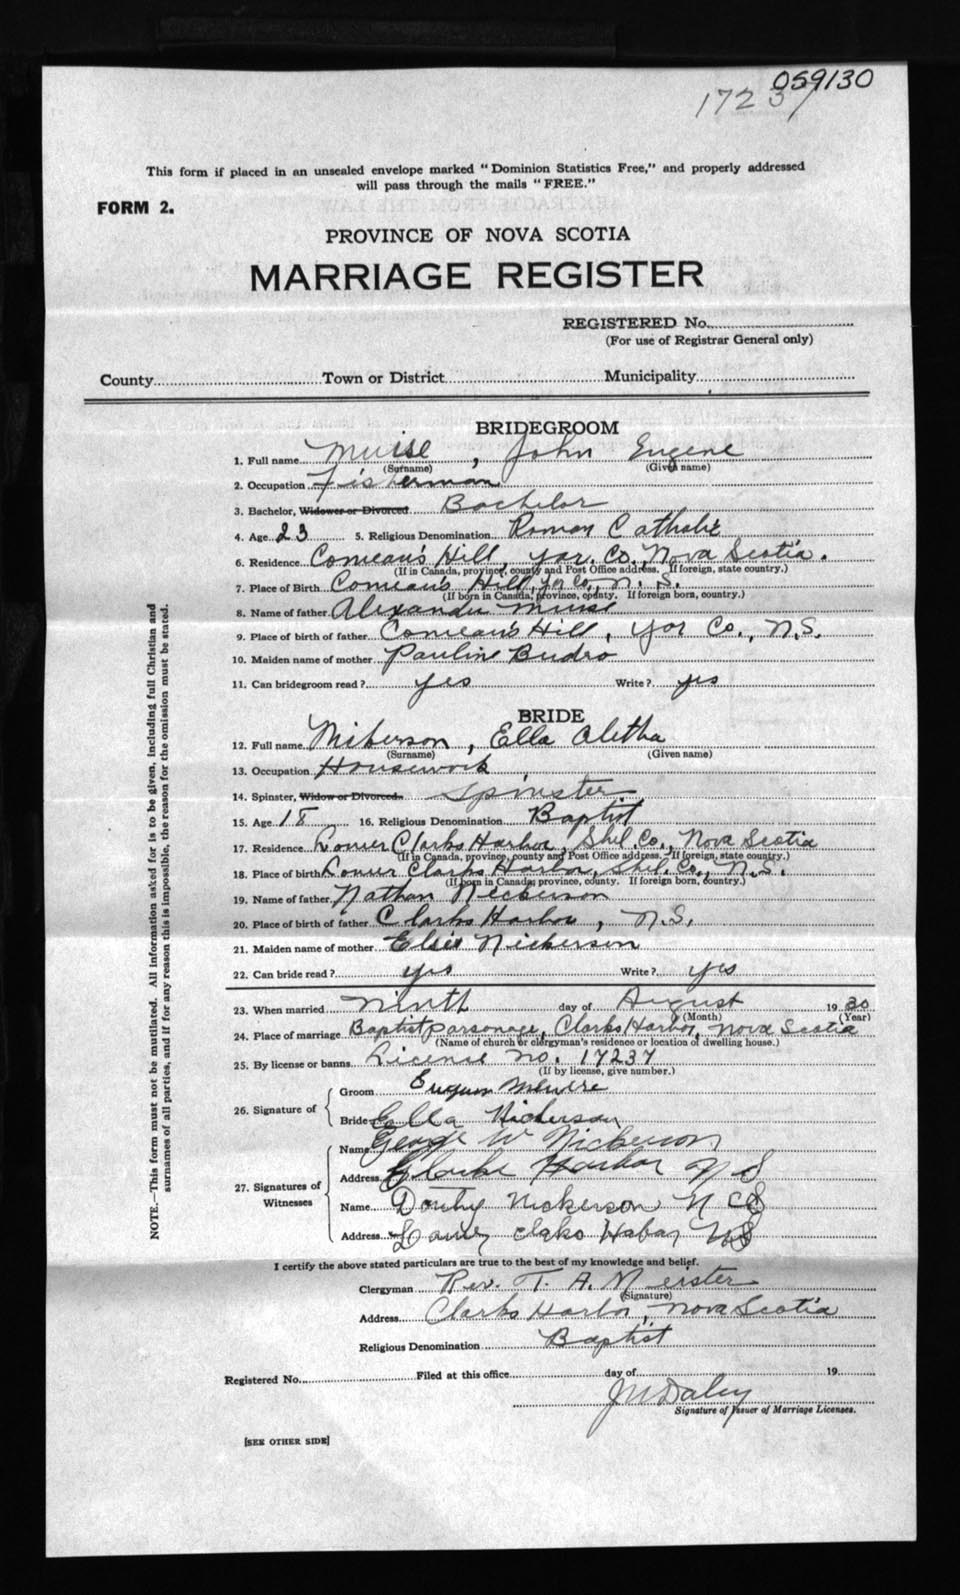 059130
17237
This form if placed in an unsealed envelope marked "Dominion Statistics Free," and properly addressed
will pass through the mails "FREE."
FORM 2.
PROVINCE OF NOVA SCOTIA
MARRIAGE REGISTER
REGISTERED No.
(For use of Registrar General only)
County Town or District Municipality
BRIDEGROOM
1. Full name Muise, John Eugene
(Surname) (Given name)
2. Occupation Fisherman
3. Bachelor, Widower or Divorced Bachelor
4. Age 23 5. Religious Denomination Roman Catholic
6. Residence Comeau's Hill, Yar. Co., Nova Scotia.
(If in Canada, province, county and Post Office address. If foreign, state country.)
7. Place of Birth Comeau's Hill, Yar Co, N. S.
(If born in Canada, province, county. If foreign born, country.)
8. Name of father Alexander Muise
9. Place of birth of father Comeau's Hill, Yar Co., N.S.
10. Maiden name of mother Pauline Budro
11. Can bridegroom read? yes Write? yes
BRIDE
12. Full name Nikerson, Ella Aletha
(Surname) (Given name)
13. Occupation Housework
14. Spinster, Widow or Divorced. Spinster
15. Age 18 16. Religious Denomination Baptist
17. Residence Lower Clarks Harbor, Shel. Co., Nova Scotia
(If in Canada, province, county and Post Office address. If foreign, state country.)
18. Place of birth Lower Clarks Harbor, Shel. Co., N.S.
(If born in Canada, province, county. If foreign born, country.)
19. Name of father Nathan Nickerson
20. Place of birth of father Clarks Harbor, N.S.
21. Maiden name of mother Elsie Nickerson
22. Can bride read? yes Write? yes
23. When married Ninth day of August 1930
(Month) (Year)
24. Place of marriage Baptist parsonage, Clarks Harbor, Nova Scotia
(Name of church or clergyman's residence or location of dwelling house.)
25. By license or banns License no. 17237
(If by license, give number.)
26. Signature of
Groom
Bride Ella Nickerson
27. Signatures of Witnesses
Name George W Nickerson
Address Clarks Harbor N S
Name Nickerson
Address N S
I certify the above stated particulars are true to the best of my knowledge and belief.
Clergyman Rev. T. A. Meister
(Signature)
Address Clarks Harbor, Nova Scotia
Religious Denomination Baptist
Registered No. Filed at this office day of 19
J M Daley
Signature of Issuer of Marriage Licenses.
[SEE OTHER SIDE]
NOTE.—This form must not be mutilated. All information asked for is to be given, including full Christian and
surnames of all parties, and if for any reason this is impossible, the reason for the omission must be stated.